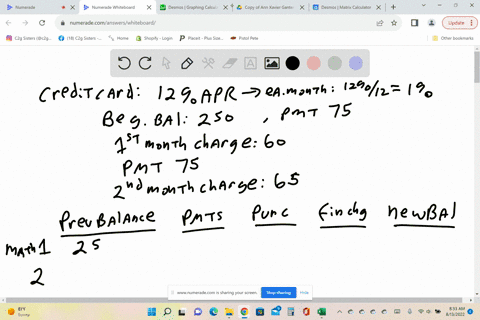 Numerade
Numerade Whiteboard
Desmos | Graphing Calculator
Copy of Ann Xavier Gantert
Desmos | Matrix Calculator
numerade.com/answers/whiteboard/
Update
C2g Sisters (@c2g...
C2g Sisters
Home
Shopify - Login
Placeit - Plus Size...
Pistol Pete
A
Credit card: 12% APR → ea. month: 12%/12 = 1%
Beg. Bal: 250 , PMT 75
1ST month charge: 60
PMT 75
2nd month charge: 65
Prev Balance PMTS Purc Finchg new Bal
math 1 25
2
www.numerade.com is sharing your screen.
Stop sharing
Hide
81°F
Sunny
8:33 AM
8/13/2022